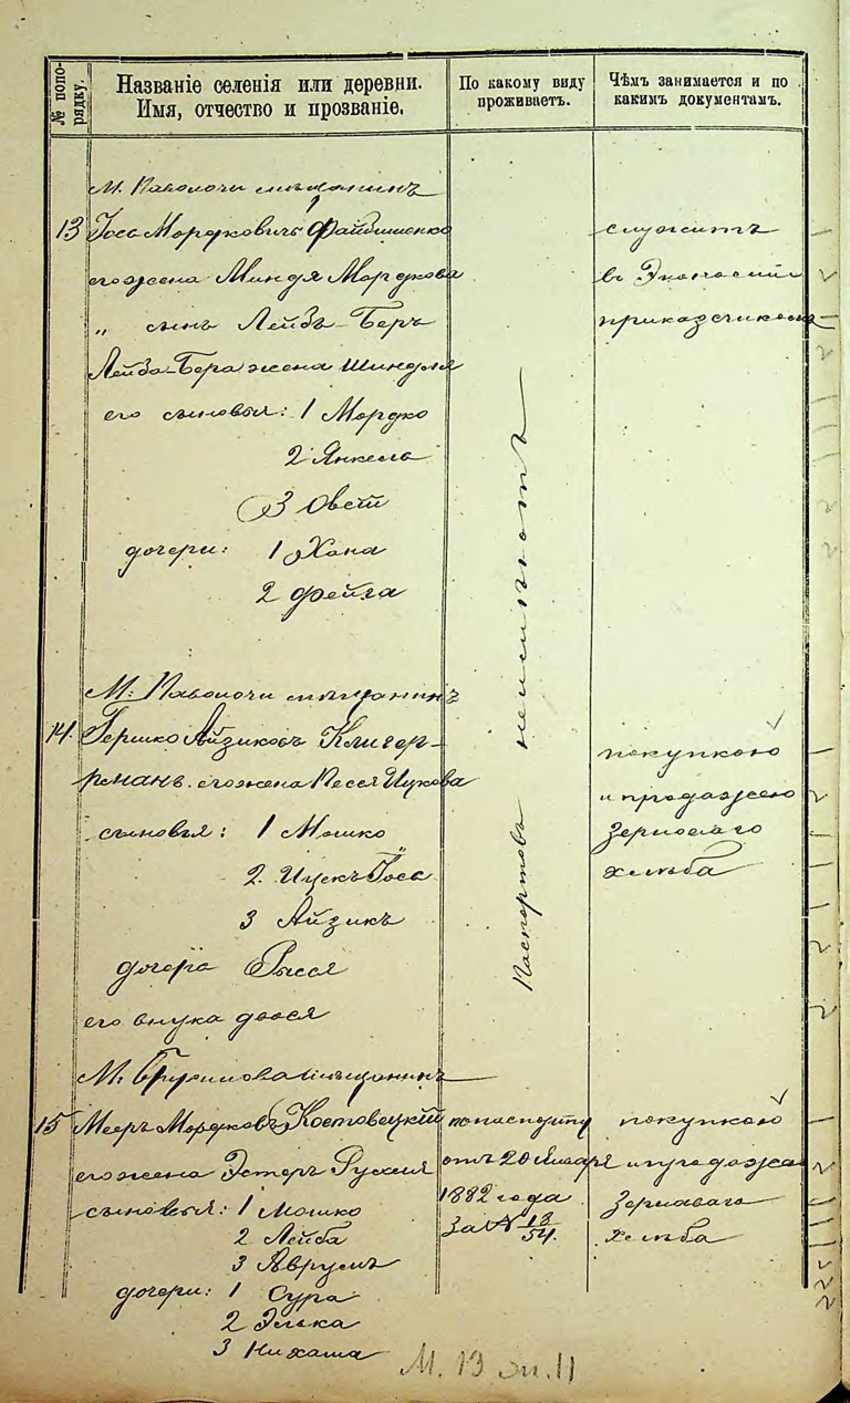 № попо-
рядку.
Названіе селенія или деревни.
Имя, отчество и прозваніе.
По какому виду
проживаетъ.
Чѣмъ занимается и по
какимъ документамъ.
М. Паволочи мѣщанинъ
13 Іосъ Мордковичъ Файбишенко
его жена Миндя Мордкова
„ сынъ Лейзъ-Беръ
Лейза-Бера жена Шиндля
его сыновья: 1 Мордко
2 Янкель
3 Овсій
дочери: 1 Хана
2 Фейга
служитъ
въ Экономіи
приказчикомъ
Паспортовъ неимѣютъ
М. Паволочи мѣщанинъ
14. Гершко Айзиковъ Клигер-
рманъ. его жена Песся Ицкова
сыновья: 1 Мошко
2. Ицекъ Іосъ
3 Айзикъ
дочера Рыся
его внука Двося
покупкою
и продажею
зерноваго
хлѣба
М. мѣщанинъ
15 Мееръ Мордковъ Костовецкій
его жена Эстеръ Рухля
сыновья: 1 Мошко
2 Лейба
3 Аврумъ
дочери: 1 Сура
2 Элька
3 Нихама
по паспорту
отъ 20 Января
1882 года
за № 18/54.
покупкою
и продажа
зерноваго
хлѣба
М. 13 ж. 11